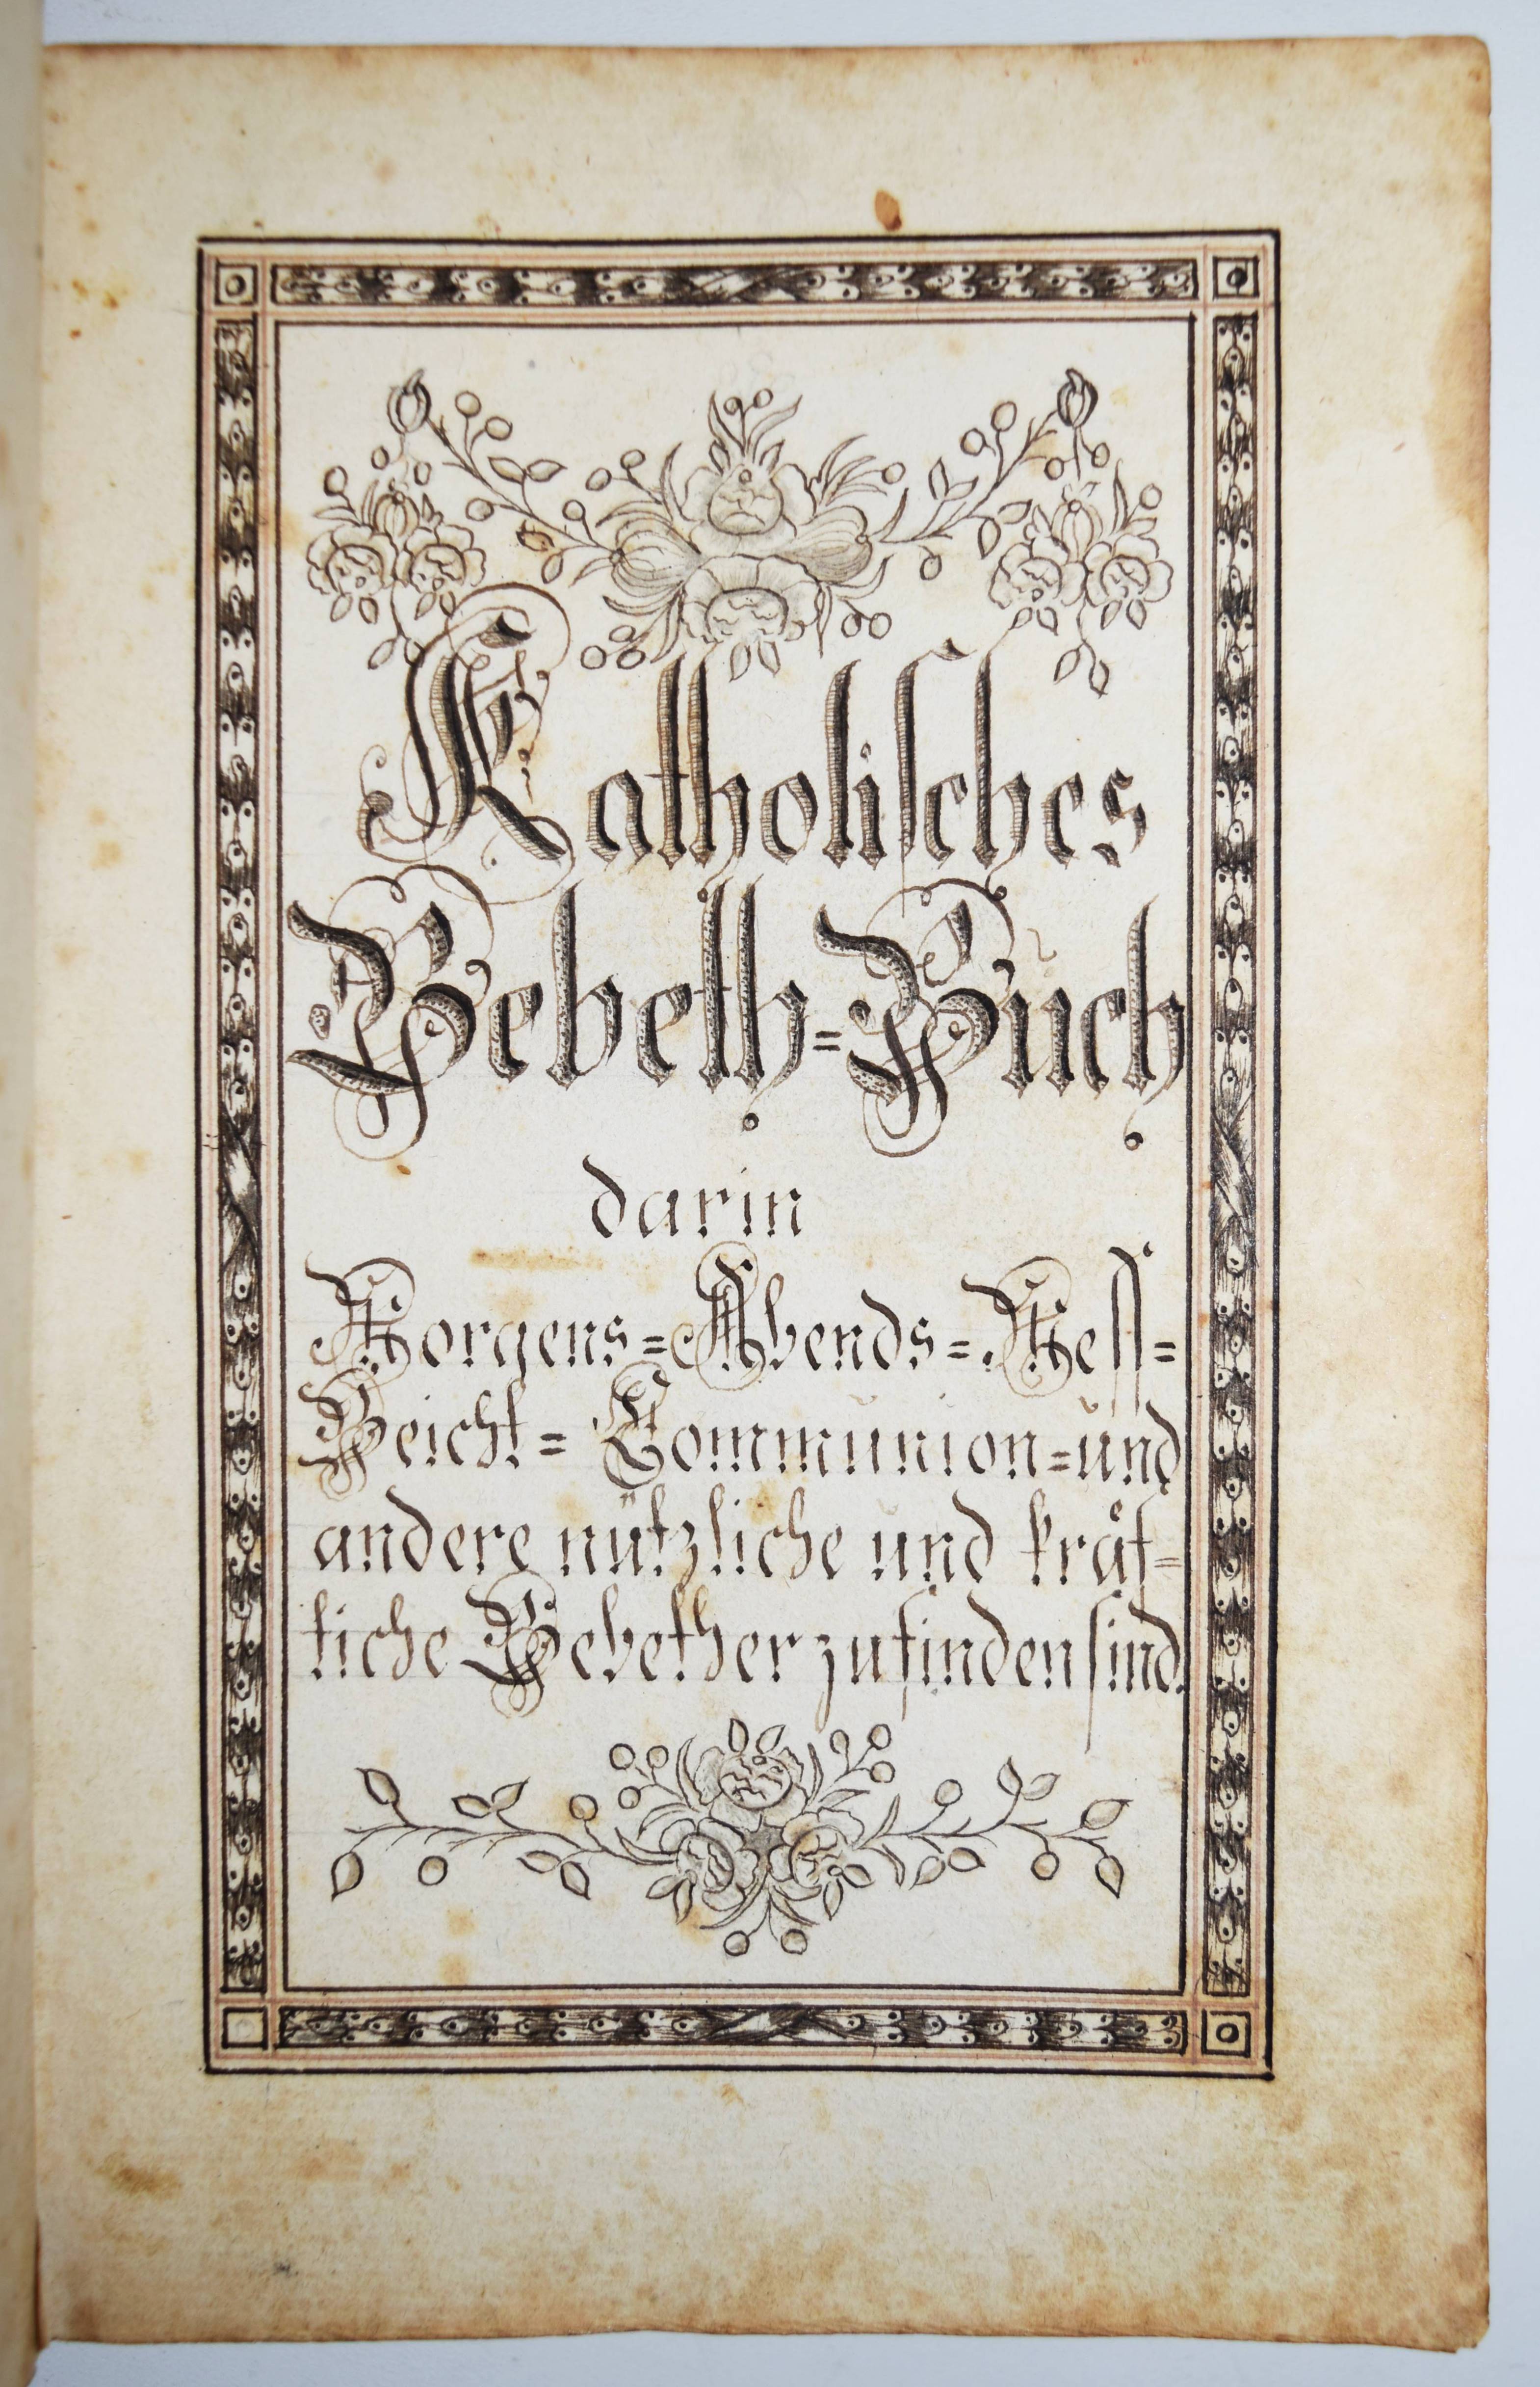 Katholisches
Gebeth=Buch
darin
Morgens=Abends=Mess=
Beicht=Communion=und
andere nützliche und kräf=
tliche Gebether zufinden sind.